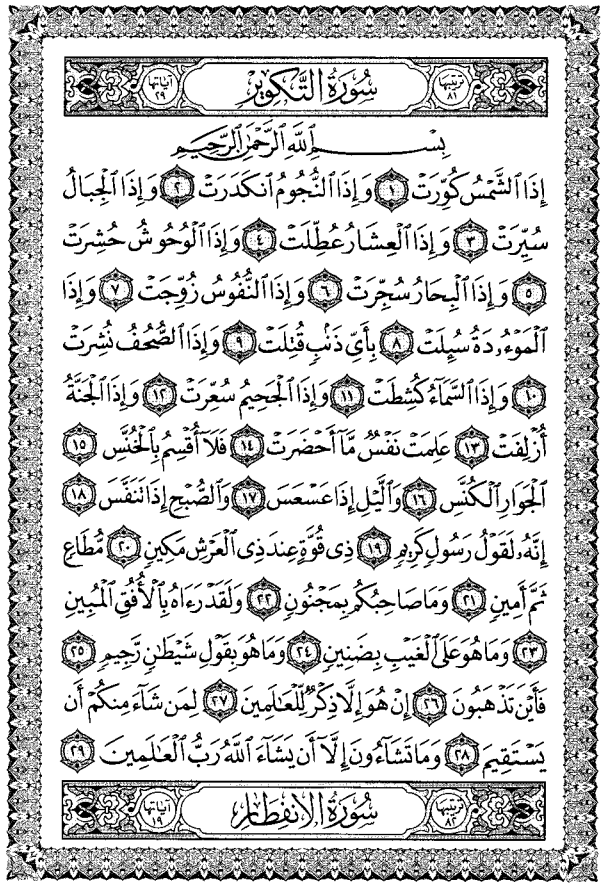 ترتيبها ٨١ سُورَةُ التَّكْوِيرِ آياتها ٢٩
بِسْمِ ٱللَّهِ ٱلرَّحْمَٰنِ ٱلرَّحِيمِ
إِذَا ٱلشَّمْسُ كُوِّرَتْ ١ وَإِذَا ٱلنُّجُومُ ٱنكَدَرَتْ ٢ وَإِذَا ٱلْجِبَالُ
سُيِّرَتْ ٣ وَإِذَا ٱلْعِشَارُ عُطِّلَتْ ٤ وَإِذَا ٱلْوُحُوشُ حُشِرَتْ
٥ وَإِذَا ٱلْبِحَارُ سُجِّرَتْ ٦ وَإِذَا ٱلنُّفُوسُ زُوِّجَتْ ٧ وَإِذَا
ٱلْمَوْءُۥدَةُ سُئِلَتْ ٨ بِأَيِّ ذَنۢبٍ قُتِلَتْ ٩ وَإِذَا ٱلصُّحُفُ نُشِرَتْ
١٠ وَإِذَا ٱلسَّمَآءُ كُشِطَتْ ١١ وَإِذَا ٱلْجَحِيمُ سُعِّرَتْ ١٢ وَإِذَا ٱلْجَنَّةُ
أُزْلِفَتْ ١٣ عَلِمَتْ نَفْسٌ مَّآ أَحْضَرَتْ ١٤ فَلَآ أُقْسِمُ بِٱلْخُنَّسِ ١٥
ٱلْجَوَارِ ٱلْكُنَّسِ ١٦ وَٱلَّيْلِ إِذَا عَسْعَسَ ١٧ وَٱلصُّبْحِ إِذَا تَنَفَّسَ ١٨
إِنَّهُۥ لَقَوْلُ رَسُولٍ كَرِيمٍ ١٩ ذِي قُوَّةٍ عِندَ ذِي ٱلْعَرْشِ مَكِينٍ ٢٠ مُّطَاعٍ
ثَمَّ أَمِينٍ ٢١ وَمَا صَاحِبُكُم بِمَجْنُونٍ ٢٢ وَلَقَدْ رَءَاهُ بِٱلْأُفُقِ ٱلْمُبِينِ
٢٣ وَمَا هُوَ عَلَى ٱلْغَيْبِ بِضَنِينٍ ٢٤ وَمَا هُوَ بِقَوْلِ شَيْطَٰنٍ رَّجِيمٍ ٢٥
فَأَيْنَ تَذْهَبُونَ ٢٦ إِنْ هُوَ إِلَّا ذِكْرٌ لِّلْعَٰلَمِينَ ٢٧ لِمَن شَآءَ مِنكُمْ أَن
يَسْتَقِيمَ ٢٨ وَمَا تَشَآءُونَ إِلَّآ أَن يَشَآءَ ٱللَّهُ رَبُّ ٱلْعَٰلَمِينَ ٢٩
ترتيبها ٨٢ سُورَةُ الِانفِطَارِ آياتها ١٩